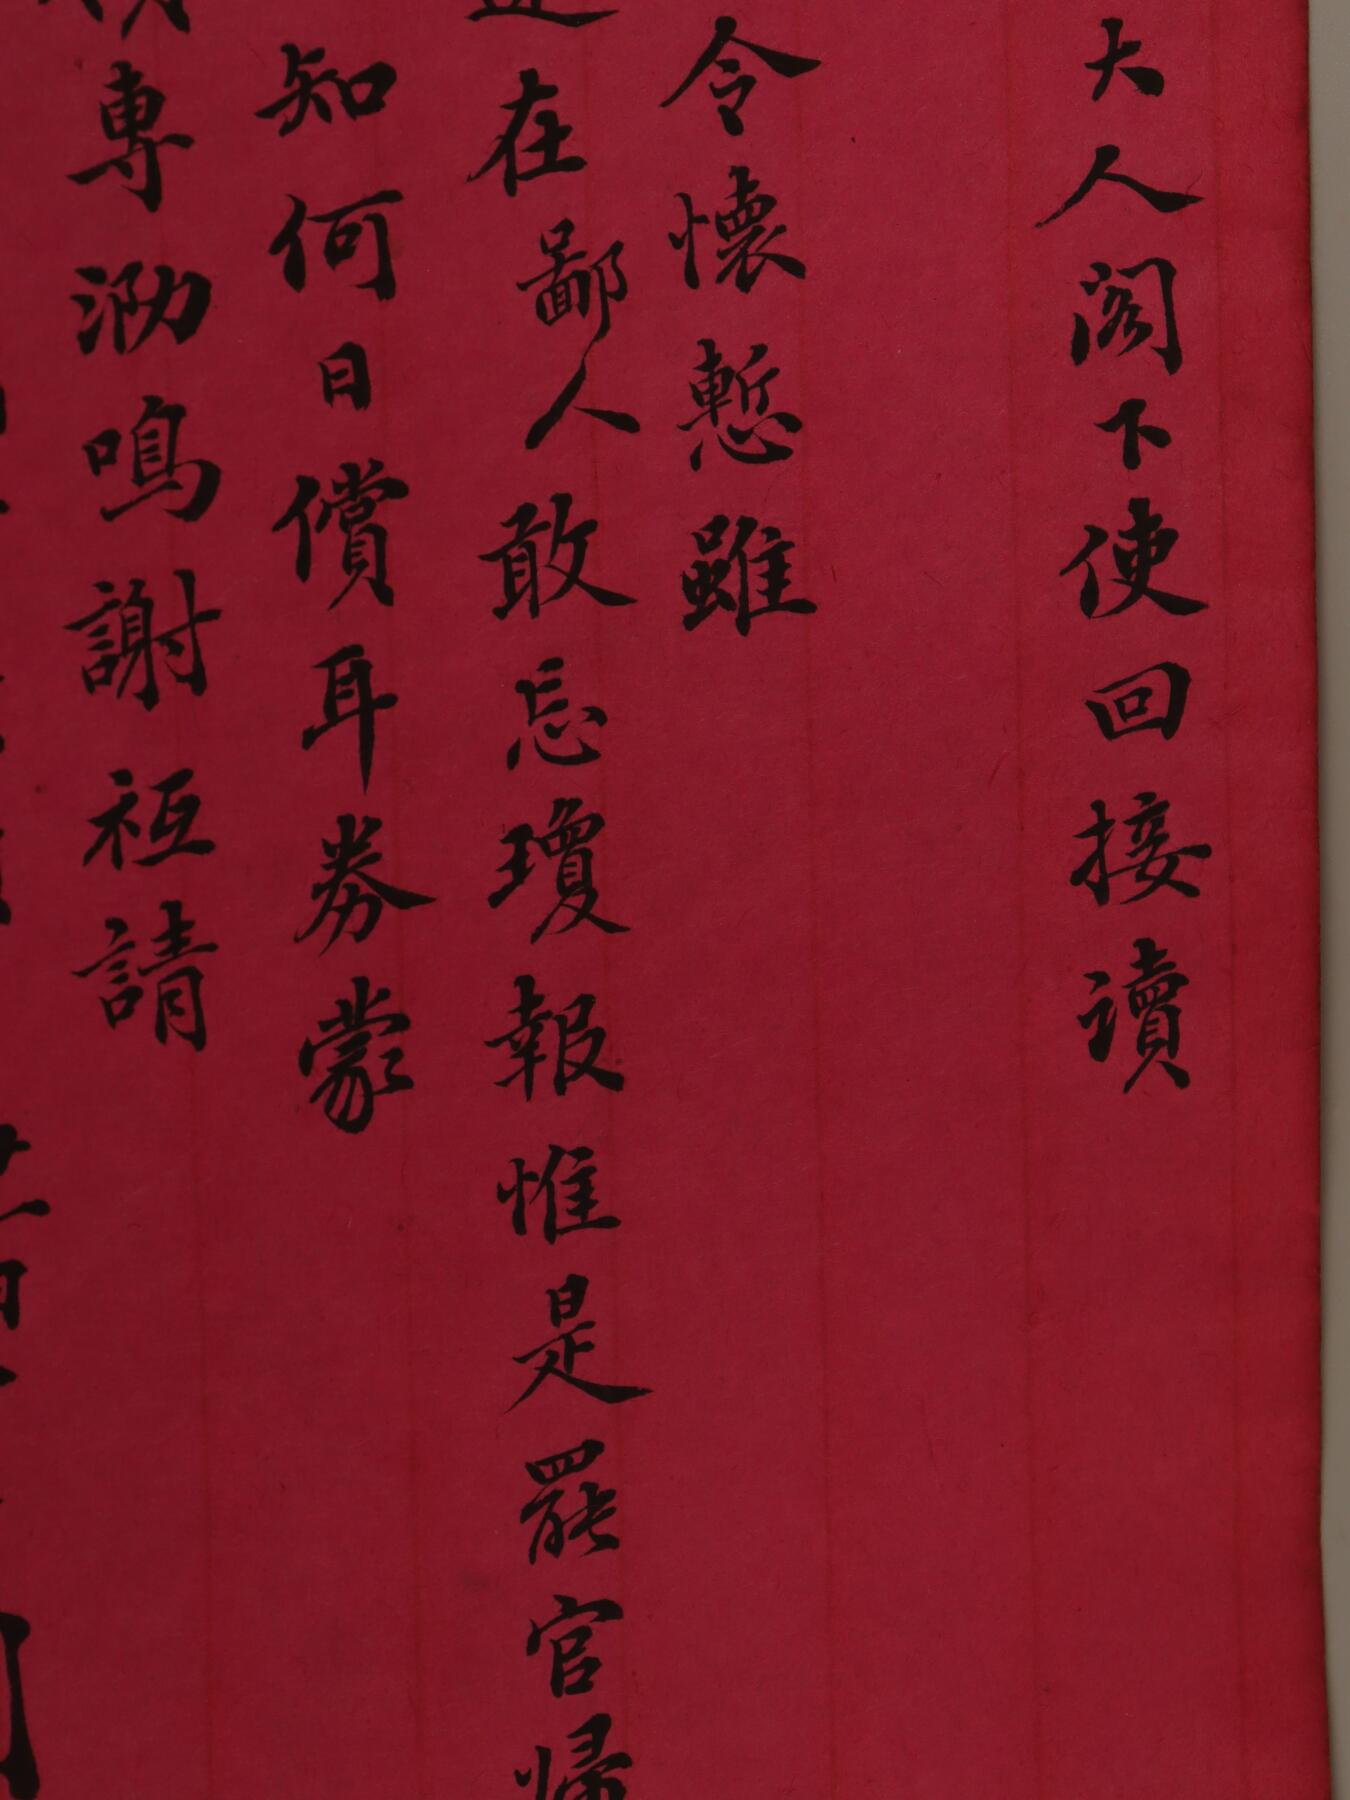 大人阁下使回接读
令懷慙雖
在鄙人敢忘瓊報惟是罷官歸
知何日償耳券蒙
專泐鳴謝祗請